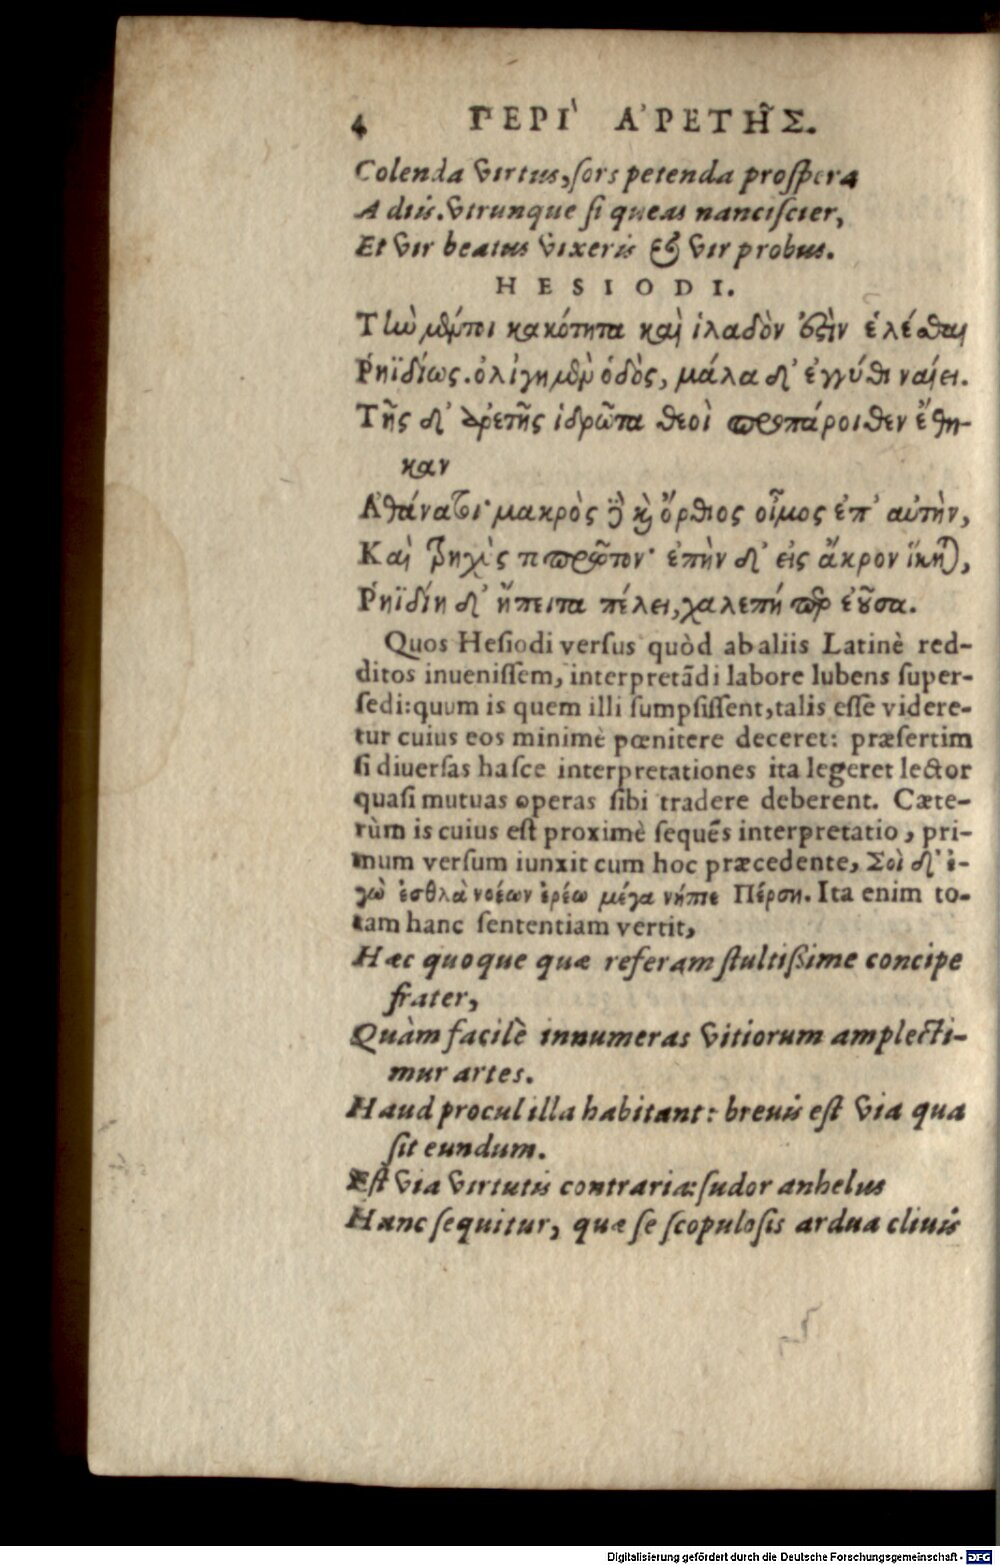 4 ΠΕΡῚ Α᾿ΡΕΤΗ͂Σ.
Colenda virtus, ſors petenda proſpera
A diis. vtrunque ſi queas nanciſcier,
Et vir beatus vixeris & vir probus.
HESIODI.
Τὴν μέντοι κακότητα καὶ ἰλαδὸν ὅστιν ἑλέσθαι
Ῥηϊδίως. ὀλίγη μὲν ὁδὸς, μάλα δ' ἐγγύθι ναίει.
Τῆς δ' ἀρετῆς ἱδρῶτα θεοὶ προπάροιθεν ἔθη-
καν
Ἀθάνατοι· μακρὸς δὲ καὶ ὄρθιος οἶμος ἐπ' αὐτὴν,
Καὶ τρηχὺς τοπρῶτον· ἐπὴν δ' εἰς ἄκρον ἵκηται,
Ῥηϊδίη δ' ἤπειτα πέλει, χαλεπή περ ἐοῦσα.
Quos Heſiodi verſus quòd ab aliis Latinè red-
ditos inueniſſem, interpretãdi labore lubens ſuper-
ſedi: quum is quem illi ſumpſiſſent, talis eſſe videre-
tur cuius eos minimè pœnitere deceret: præſertim
ſi diuerſas haſce interpretationes ita legeret lector
quaſi mutuas operas ſibi tradere deberent. Cæte-
rùm is cuius eſt proximè ſequẽs interpretatio, pri-
mum verſum iunxit cum hoc præcedente, Σοὶ δ' ἐ-
γὼ ἐσθλὰ νοέων ἐρέω μέγα νήπιε Πέρση. Ita enim to-
tam hanc ſententiam vertit,
Hæc quoque quæ referam ſtultißime concipe
frater,
Quàm facilè innumeras vitiorum amplecti-
mur artes.
Haud procul illa habitant: breuis eſt via qua
ſit eundum.
Eſt via virtutis contraria: ſudor anhelus
Hanc ſequitur, quæ ſe ſcopuloſis ardua cliuis
Digitalisierung gefördert durch die Deutsche Forschungsgemeinschaft - DFG